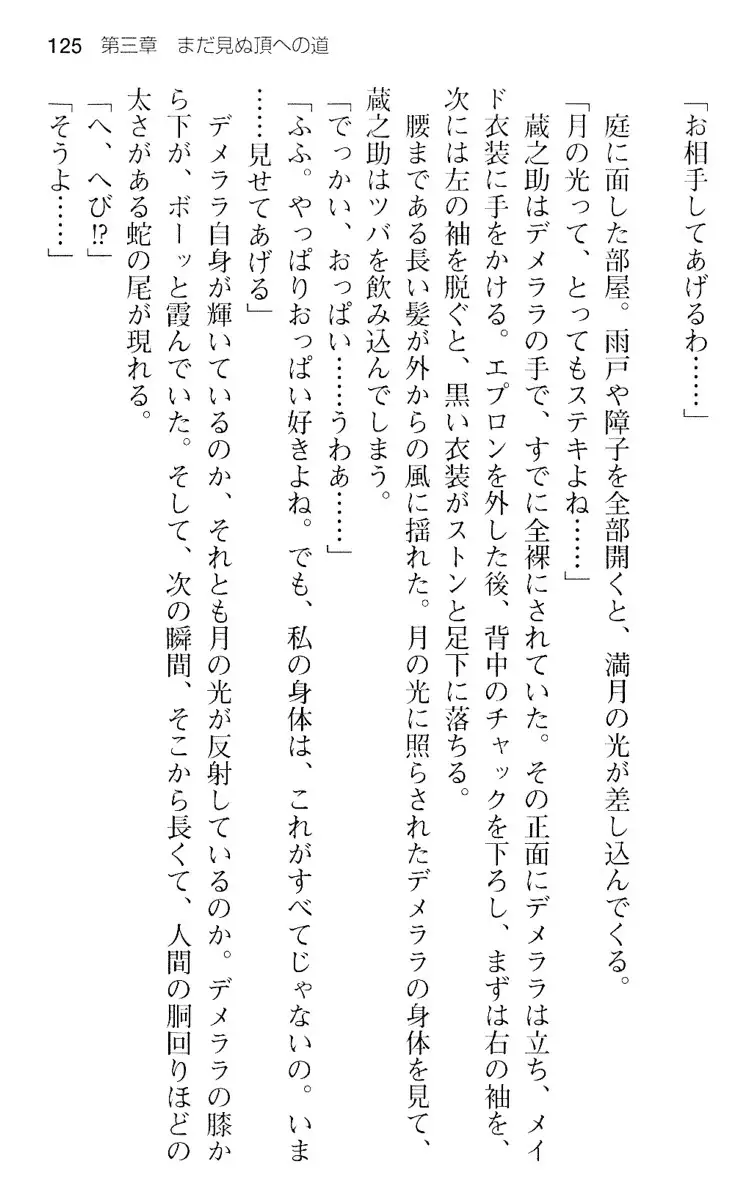 125 第三章　まだ見ぬ頂への道
「お相手してあげるわ……」
　庭に面した部屋。雨戸や障子を全部開くと、満月の光が差し込んでくる。
「月の光って、とってもステキよね……」
　蔵之助はデメララの手で、すでに全裸にされていた。その正面にデメララは立ち、メイ
ド衣装に手をかける。エプロンを外した後、背中のチャックを下ろし、まずは右の袖を、
次には左の袖を脱ぐと、黒い衣装がストンと足下に落ちる。
　腰まである長い髪が外からの風に揺れた。月の光に照らされたデメララの身体を見て、
蔵之助はツバを飲み込んでしまう。
「でっかい、おっぱい……うわぁ……」
「ふふ。やっぱりおっぱい好きよね。でも、私の身体は、これがすべてじゃないの。いま
……見せてあげる」
　デメララ自身が輝いているのか、それとも月の光が反射しているのか。デメララの膝か
ら下が、ボーッと霞んでいた。そして、次の瞬間、そこから長くて、人間の胴回りほどの
太さがある蛇の尾が現れる。
「へ、へび!?」
「そうよ……」